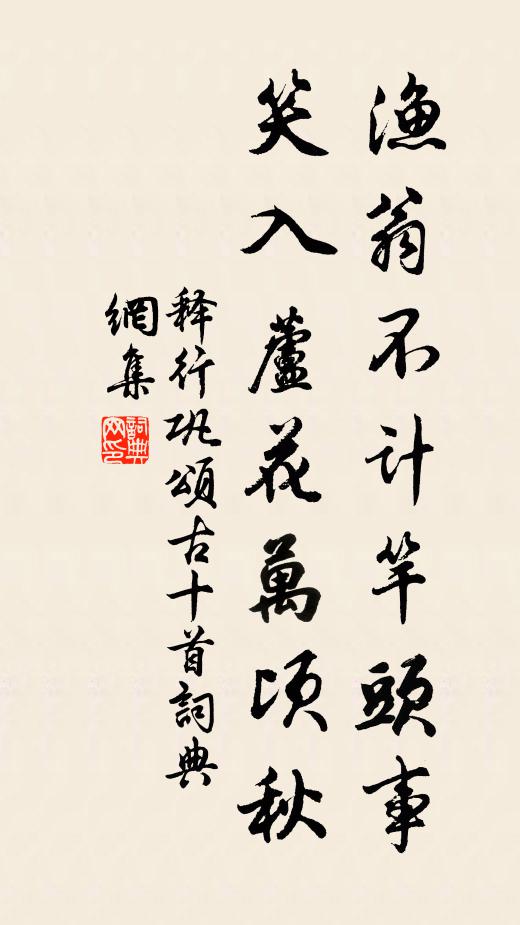 漁翁不计竿頭事
笑入蘆花萬頃秋
释行巩頌古十首詞典
網集
詞典
网印